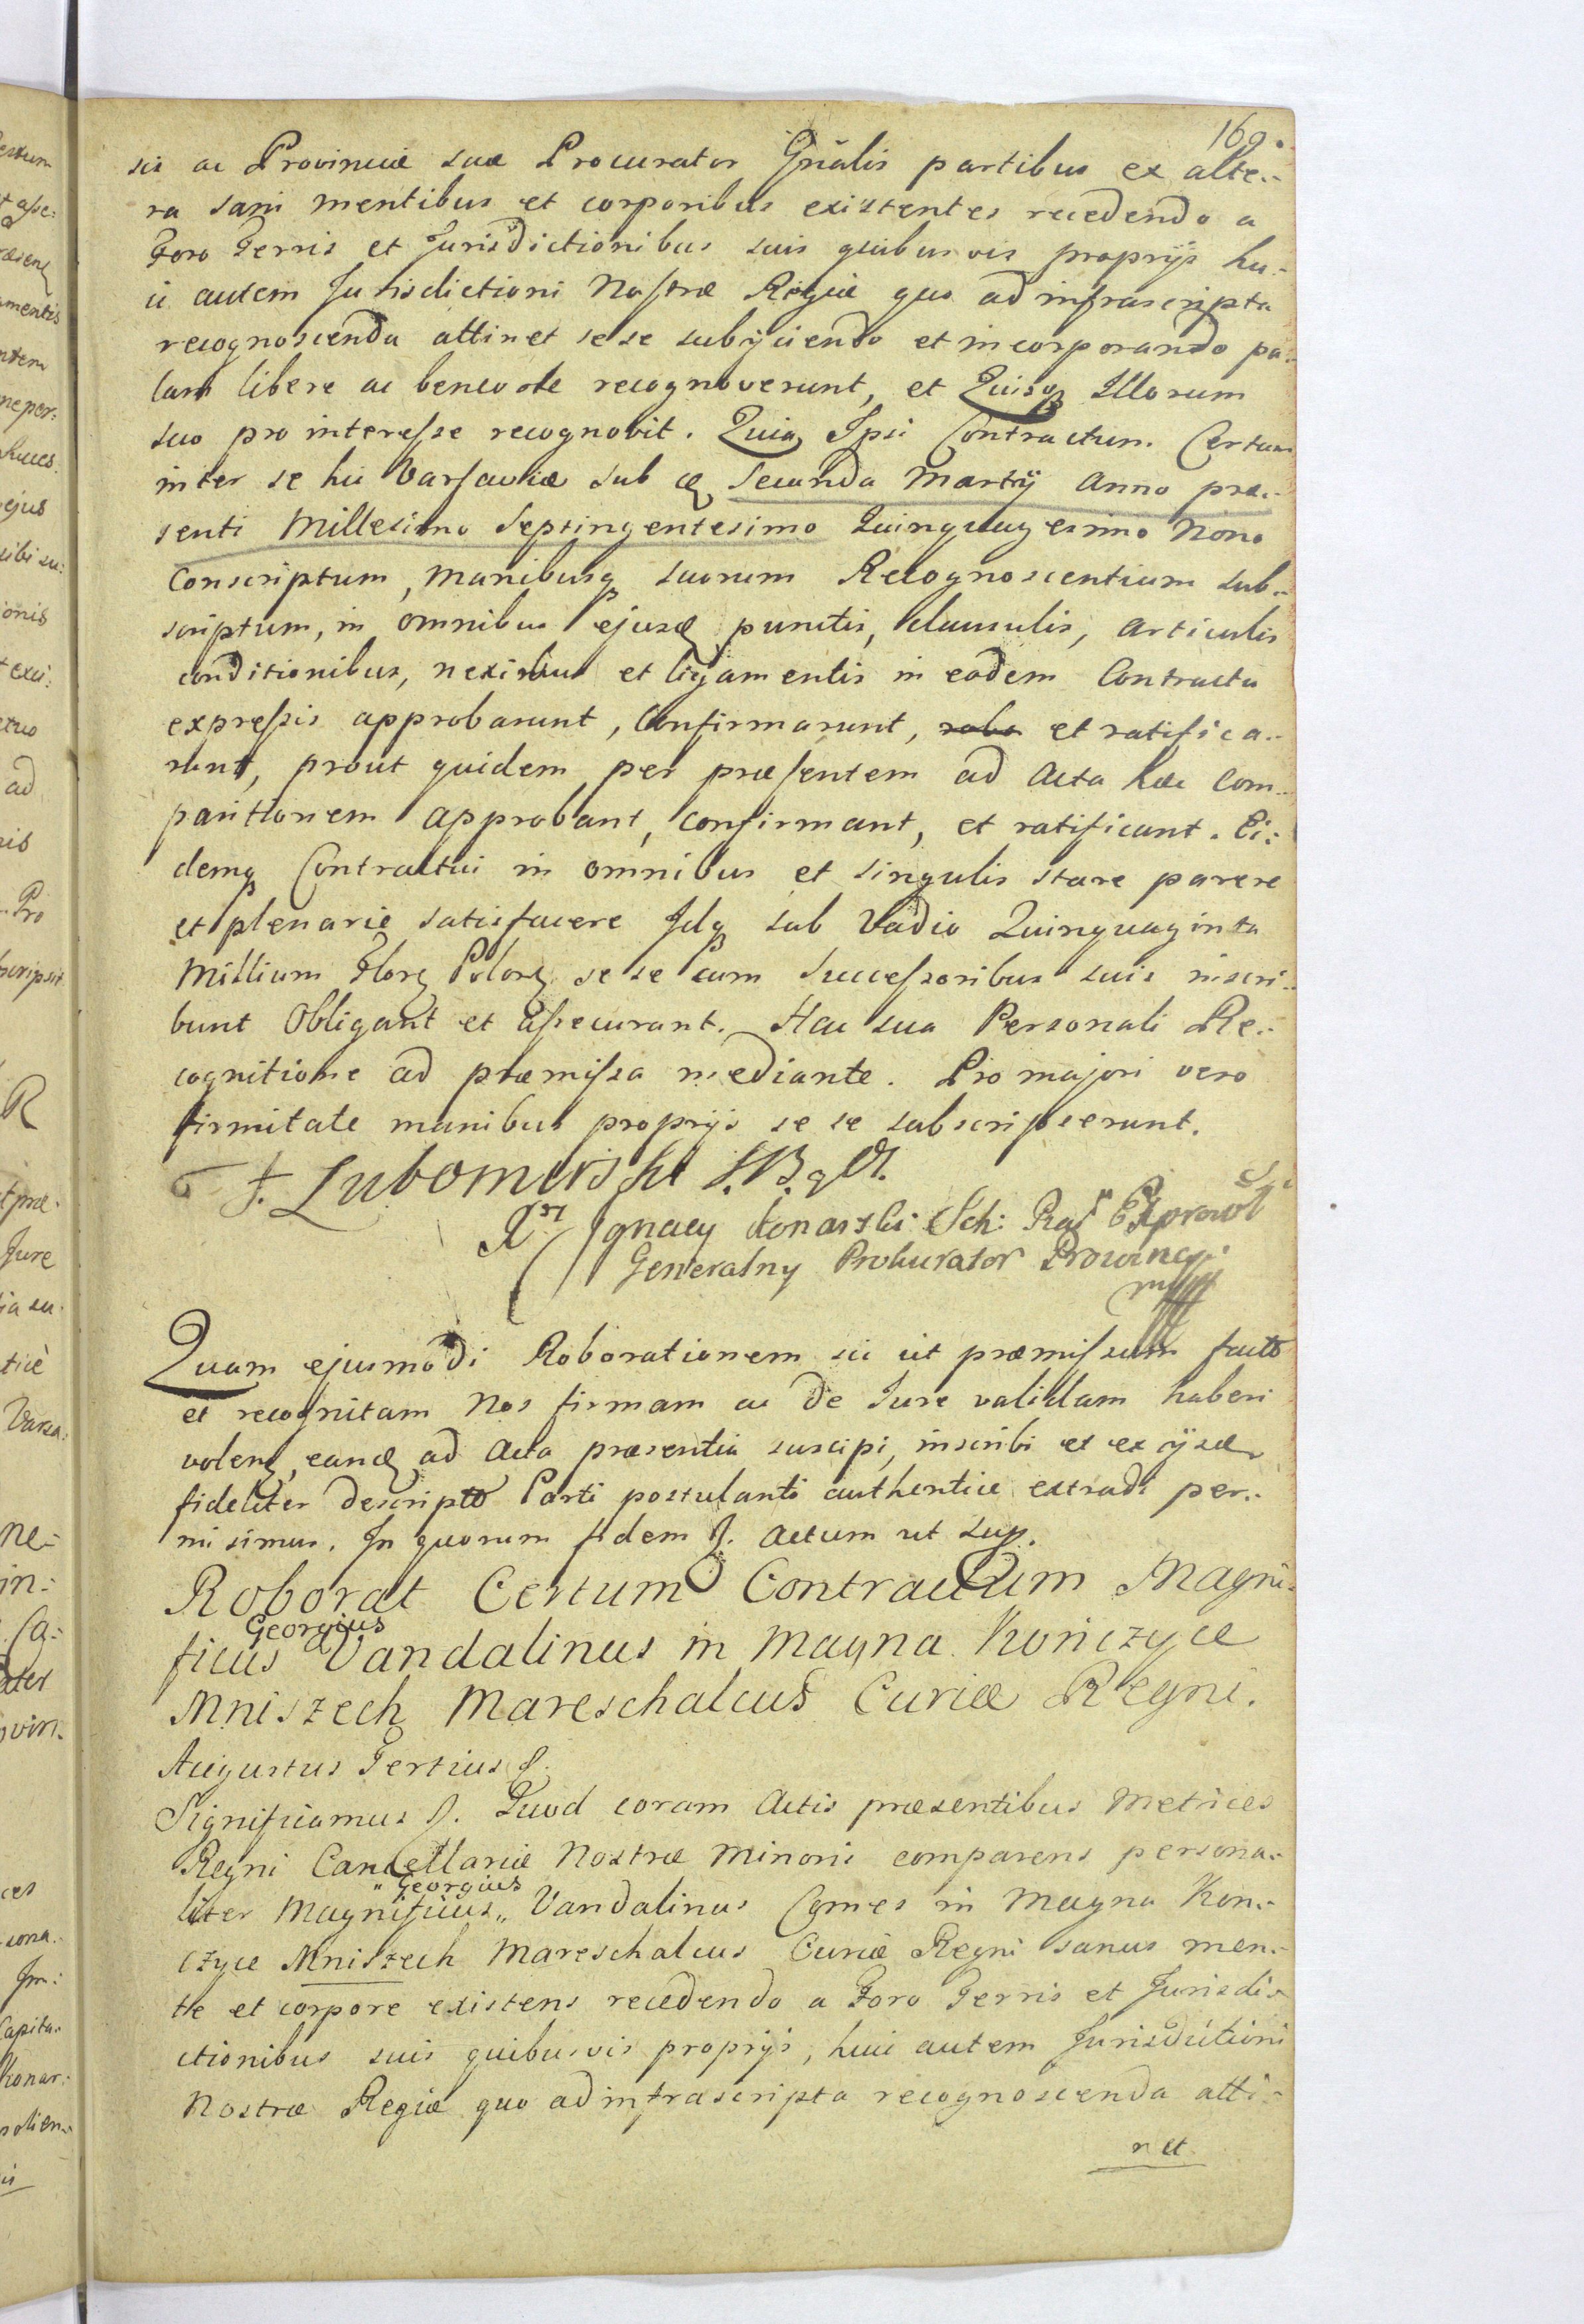 169.
sis ac Provinciæ suæ Procurator Gnãlis partibus ex alte:-
ra sani mentibus et corporibus existentes recedendo a
Foro Terris et Jurisdictionibus suis quibusvis proprijs hu:-
ic autem Jurisdictioni Nostræ Regiæ quo ad infrascripta
recognoscenda attinet sese subijciendo et incorporando pa:-
lam libere ac benevole recognoverunt, et Quisq Illorum
suo pro interesse recognovit. Quia Ipsi Contractum Certum
inter se hic Varsaviæ sub æ secunda Martij Anno præ:-
senti Millesimo Septingentesimo Quinquagesimo Nono
conscriptum, manibusq suorum Recognoscentium sub:-
scriptum, in omnibus ejusd punctis, clausulis, articulis
conditionibus, nexibus et ligamentis in eodem Contractu
expressis approbarunt, Confirmarunt, robo et ratifica:-
runt, prout quidem per præsentem ad Acta hæc Com:-
paritionem approbant, confirmant, et ratificant. Ei:-
demq Contractui in omnibus et singulis stare parere
et plenarie satisfacere Idq sub Vadio Quinquaginta
Millium Flor Polor se se cum Successoribus suis inscri:-
bunt Obligant et assecurant. Hac sua Personali Re:-
cognitione ad præmissa mediante. Pro majori vero
firmitate manibus proprijs se se subscripserunt.
F. Lubomirski
Xn Ignacy Konarski Sch: Piar
Generalny Prokurator Prowincyi
mpp
Quam ejusmodi Roborationem sic ut præmissum facto
et recognitam Nos firmam ac de Jure validam haberi
volen, eand ad Acta præsentia suscipi, inscribi et ex ijsd
fideliter descripto Parti postulanti authentice extradi per:-
misimus. In quorum fidem J. Actum ut sup.
Roborat Certum Contractum Magni:-
Georgius
ficus Vandalinus in Magna Kończyce
Mniszech Mareschalcus Curiæ Regni.
Augustus Tertius J.
Significamus J. Quod coram Actis præsentibus Metrices
Regni Cancellariæ Nostræ Minoris comparens persona:-
„Georgius
liter Magnificus„ Vandalinus Comes in Magna Kon:-
czyce Mniszech Mareschalcus Curiæ Regni sanus men:-
te et corpore existens recedendo a Foro Terris et Jurisdi:-
ctionibus suis quibusvis proprijs, huic autem Jurisdictioni
Nostræ Regiæ quo ad infrascripta recognoscenda atti:-
net